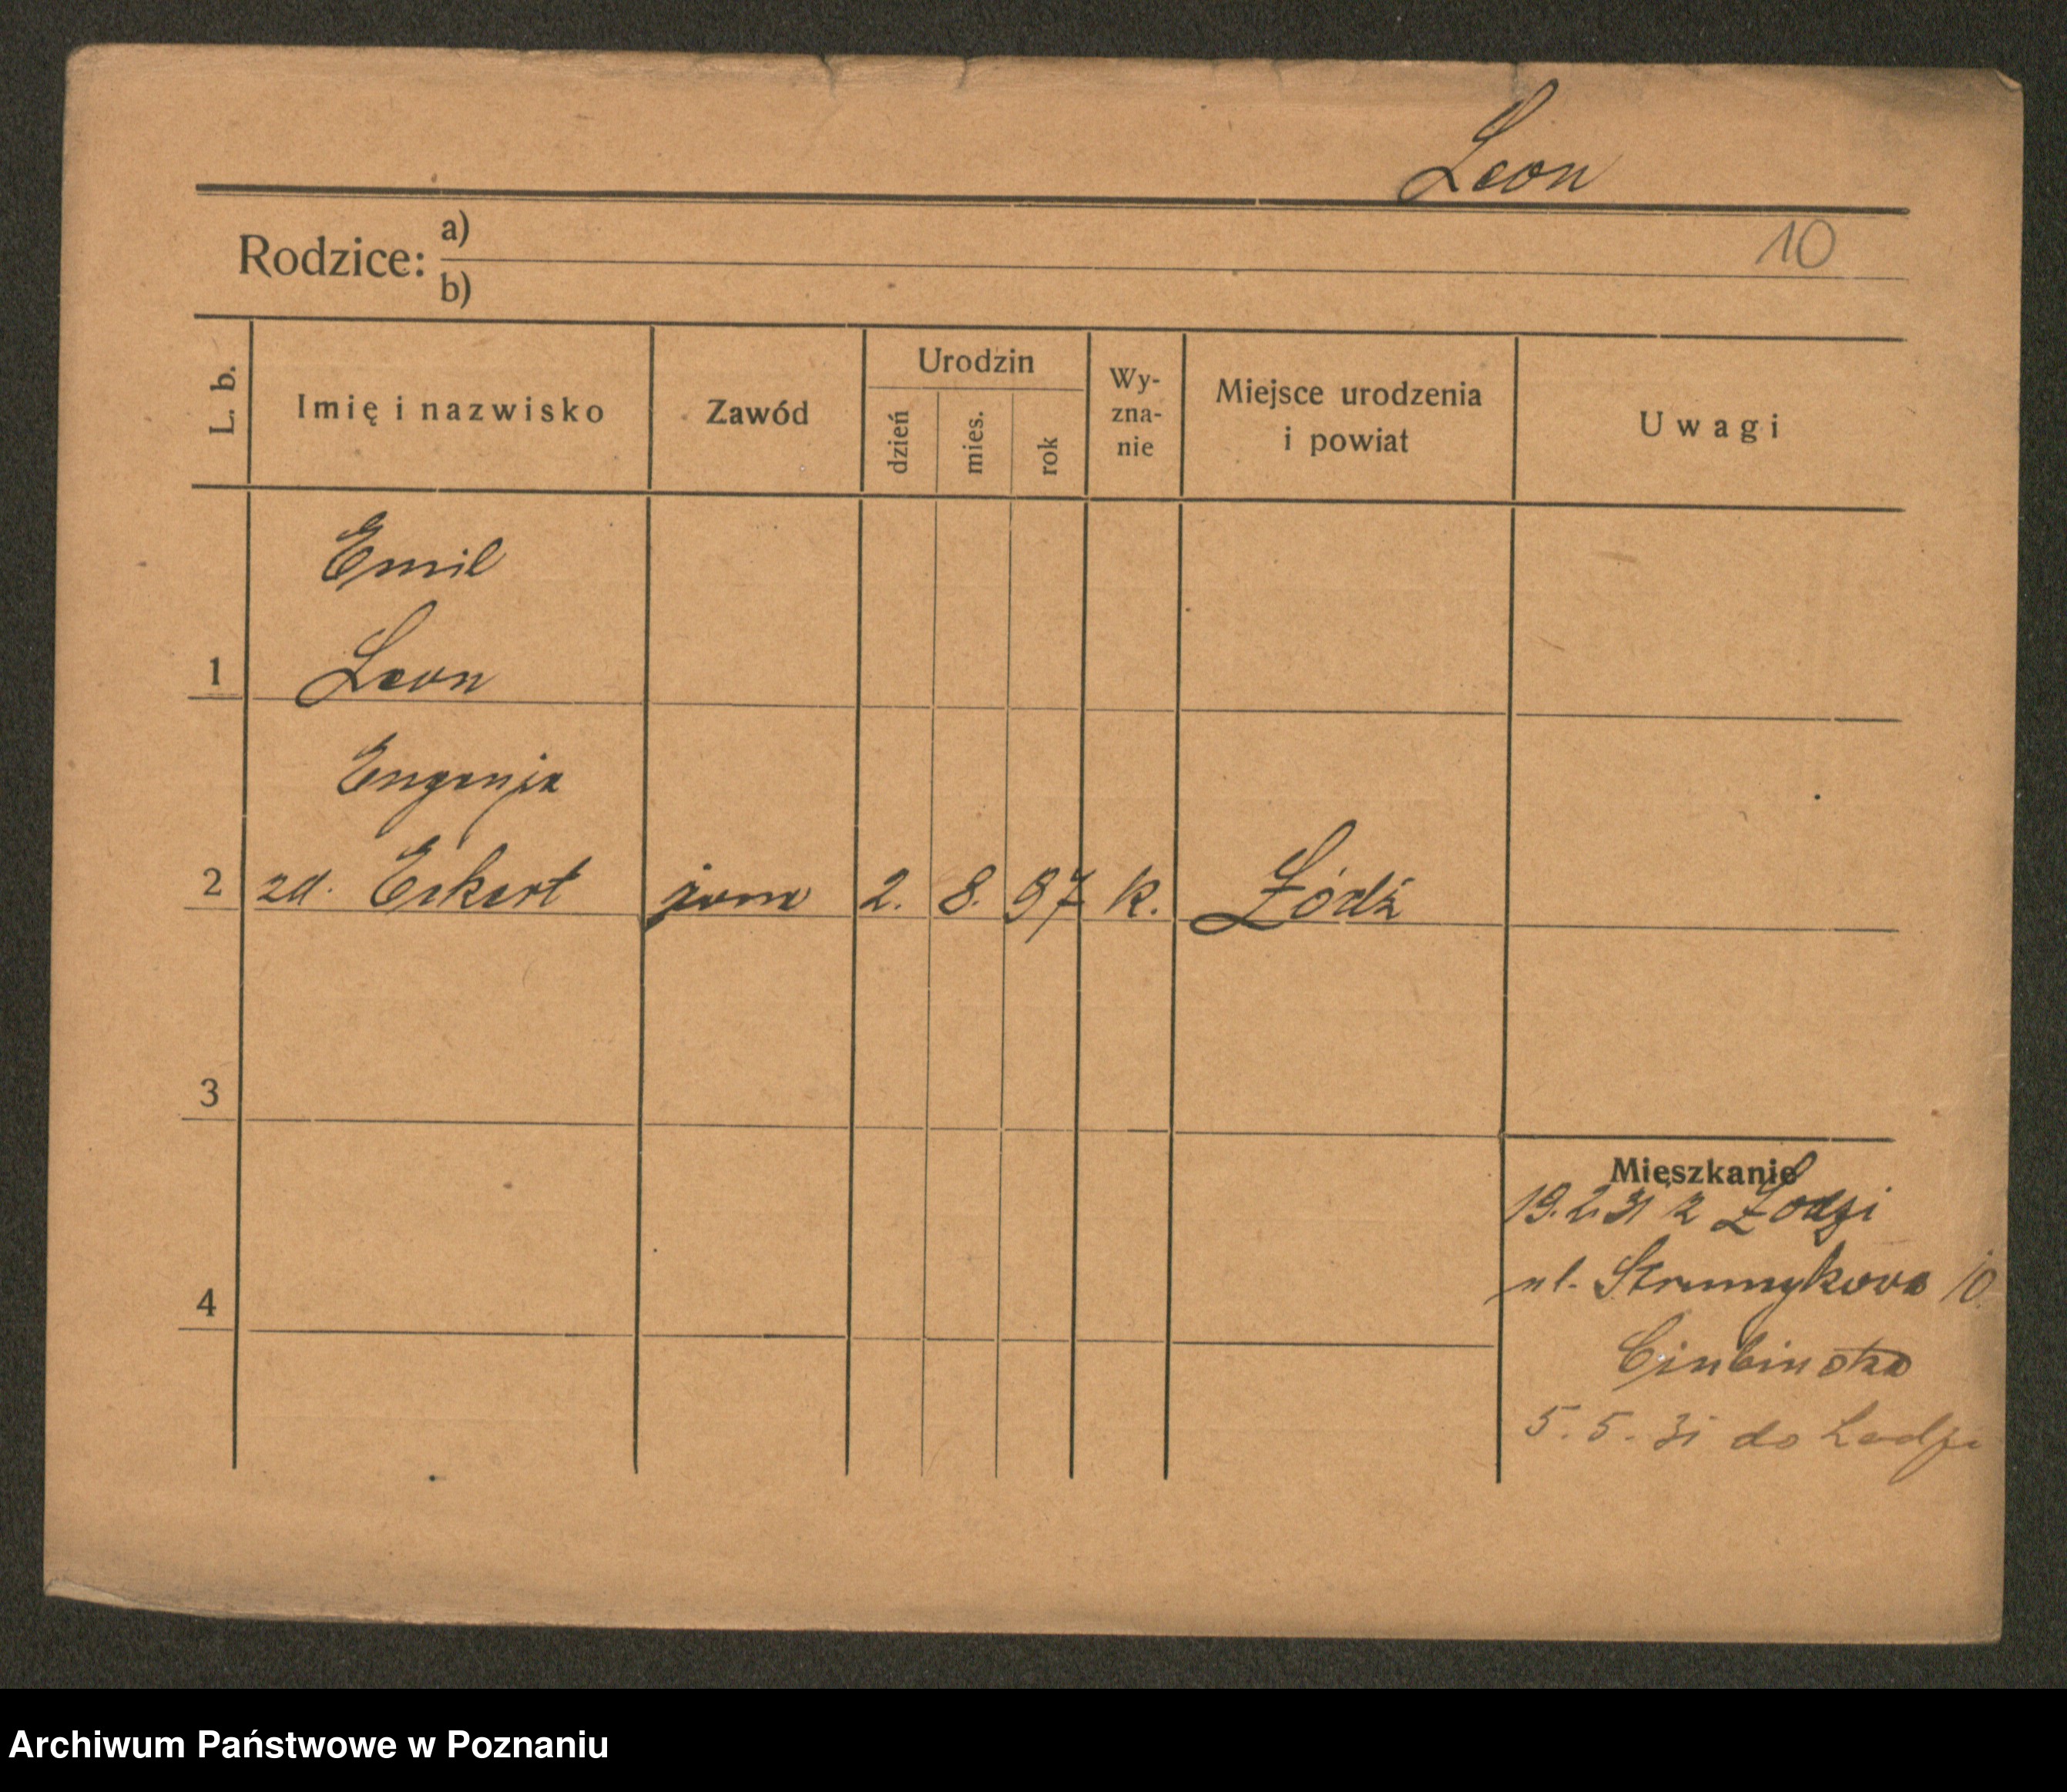 Leon
10
Rodzice: a)
b)
L. b.
Imię i nazwisko
Zawód
Urodzin
dzień
mies.
rok
Wy-
zna-
nie
Miejsce urodzenia
i powiat
Uwagi
Emil
1 Leon
Eugenja
2 zd. Eckert żona 2. 8. 97 k. Łódź
3
Mieszkanie
19.2.31 z Łodzi
4
ul. Strumykowa 10.
5. 5. 31 do Lodzi
Archiwum Państwowe w Poznaniu